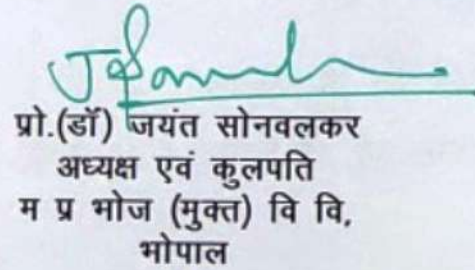 प्रो.(डॉ) जयंत सोनवलकर
अध्यक्ष एवं कुलपति
म प्र भोज (मुक्त) वि वि,
भोपाल